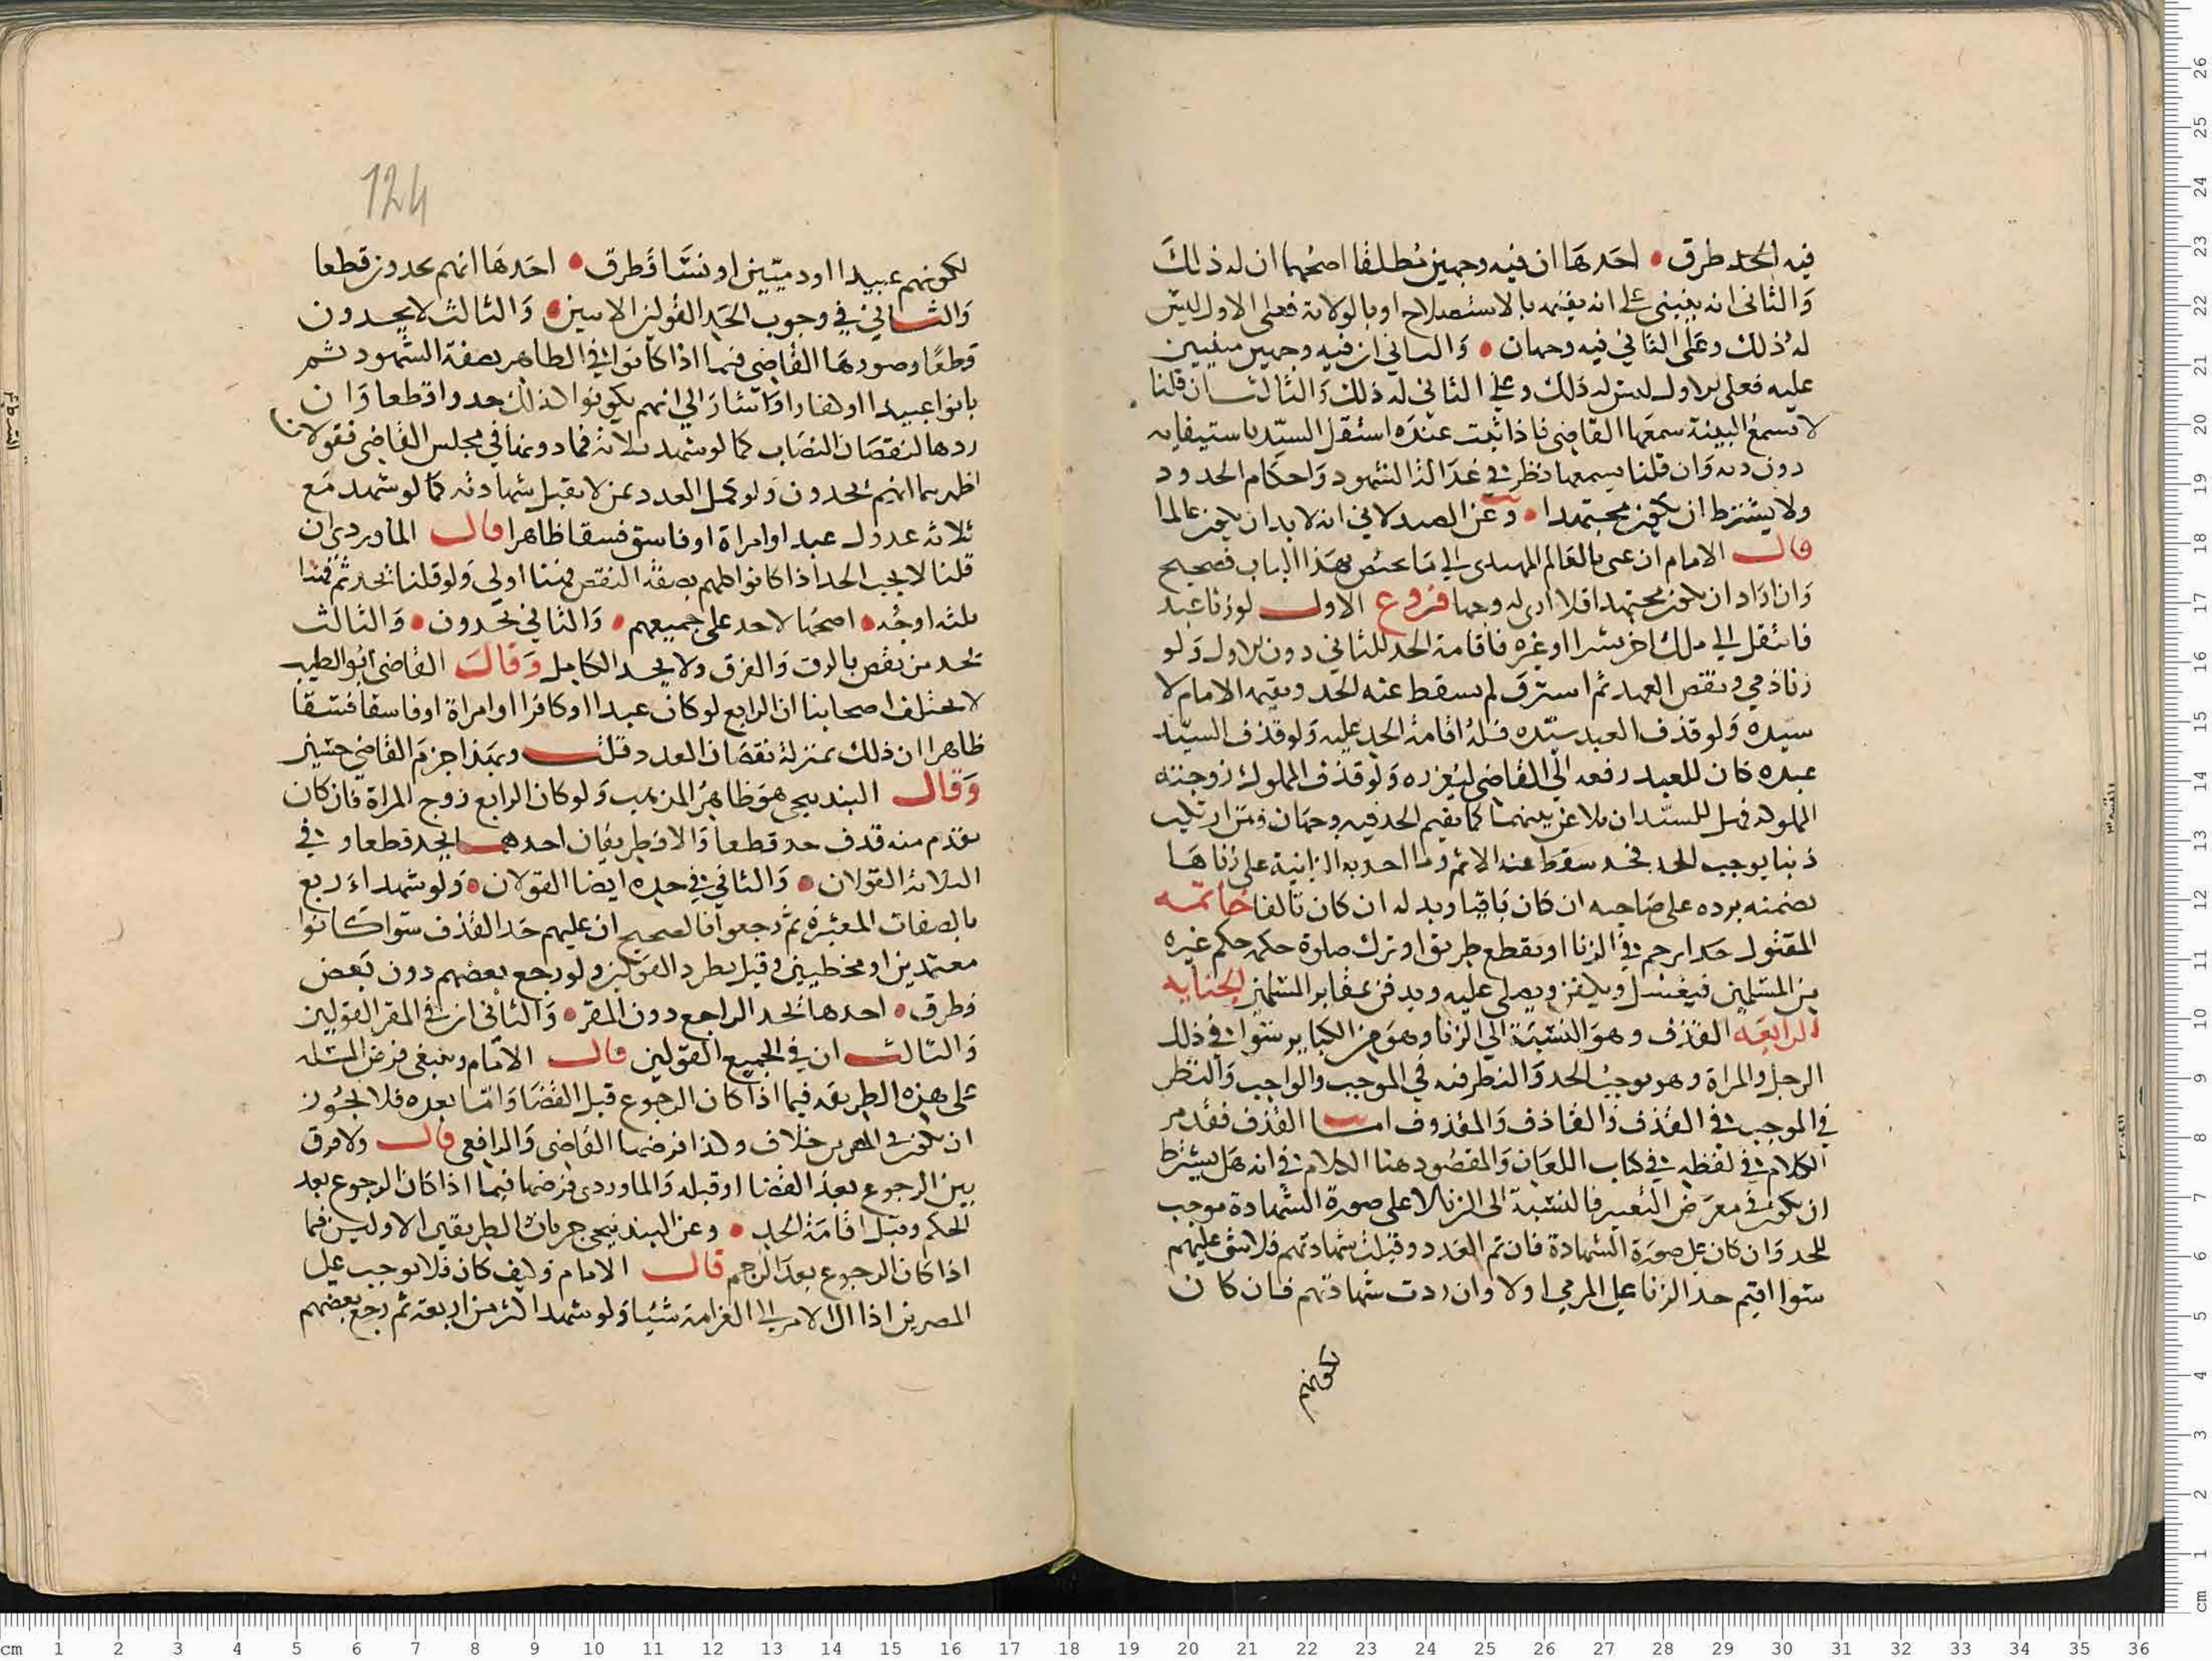 فيه الحد طرق • احدها ان فيه وجهين مطلقا اصحهما ان له ذلك
والثاني انه ينبني على انه يقيمه بالاستصلاح او بالولاية فعلى الاول ليس
له ذلك وعلى الثاني فيه وجهان • والثاني ان فيه وجهين مبنيين
عليه فعلى الاول ليس له ذلك وعلى الثاني له ذلك والثالث ان قلنا
لا تسمع البينة سمعها القاضي فاذا ثبت عنده استقل السيد باستيفايه
دون دونه وان قلنا يسمعها نظر في عدالة الشهود واحكام الحدود
ولا يشترط ان يكون مجتهدا • وعن الصيدلاني انه لا بد ان يكون عالما
قال الامام ان عنى بالعالم المهتدي الى ما يختص بهذا الباب فصحيح
وان اراد ان يكون مجتهدا فلا ارى له وجها فروع الاول لو زنا عبد
فانتقل الى ملك اخر بشرا او غيره فاقامة الحد للثاني دون الاول ولو
زنا ذمي ونقض العهد ثم استرق لم يسقط عنه الحد ويقيمه الامام لا
سيده ولو قذف العبد سيده فله اقامة الحد عليه ولو قذف السيد
عبده كان للعبد رفعه الى القاضي ليعزره ولو قذف المملوك زوجته
المملوكة فهل للسيد ان يلاعن بينهما كما يقيم الحد فيه وجهان ومن ارتكب
ذنبا يوجب الحد فحد سقط عنه الاثم وما اخذته الزانية على زناها
تضمنه برده على صاحبه ان كان باقيا وبدله ان كان تالفا خاتمه
المقتول حدا برجم في الزنا او بقطع طريق او ترك صلوة حكمه حكم غيره
من المسلمين فيغسل ويكفن ويصلى عليه ويدفن في مقابر المسلمين الجنايه
الرابعه القذف وهو النسبة الى الزنا وهو من الكباير يستوا في ذلك
الرجل والمراة وهو يوجب الحد والنظر فيه في الموجب والواجب والنظر
في الموجب في القذف والقاذف والمقذوف اما القذف فقد مر
الكلام في لفظه في كتاب اللعان والمقصود هنا الكلام في انه هل يشترط
ان يكون في معرض التعيير فالنسبة الى الزنا لا على صورة الشهادة موجب
للحد وان كان على صورة الشهادة فان تم العدد وقبلت شهادتهم فلا شي عليهم
سوا اقيم حد الزنا على المرمي اولا وان ردت شهادتهم فان كان
لكونهم
124
لكونهم عبيدا او ذميين او نسا فطرق • احدها انهم يحدون قطعا
والثاني في وجوب الحد القولين الاتيين • والثالث لا يحدون
قطعا وصورها القاضي فيما اذا كانوا في الظاهر بصفة الشهود ثم
بانوا عبيدا او كفارا واشار الى انهم يكونوا كذلك حدوا قطعا وان
ردها لنقصان النصاب كما لو شهد ثلاثة فما دونها في مجلس القاضي فقولان
اظهرهما انهم يحدون ولو كمل العدد بمن لا يقبل شهادته كما لو شهد مع
ثلاثة عدول عبد او امراة او فاسق فسقا ظاهرا قال الماوردي ان
قلنا لا يجب الحد اذا كانوا كلهم بصفة النقص فهنا اولى ولو قلنا يحد ثم فهنا
ثلثه اوجه • اصحها لا حد على جميعهم • والثاني يحدون • والثالث
يحد من نقص بالرق والفرق ولا يحد الكامل وقال القاضي ابو الطيب
لا يختلف اصحابنا ان الرابع لو كان عبدا او كافرا او امراة او فاسقا فسقا
ظاهرا ان ذلك بمنزلة نقصان العدد قلت وبهذا جزم القاضي حسين
وقال البندنيجي هو ظاهر المذهب ولو كان الرابع زوج المراة فان كان
تقدم منه قذف حد قطعا والا فطريقان احدهما يحد قطعا وفي
الثلاثة القولان • والثاني في حده ايضا القولان • ولو شهد اربع
بالصفات المعتبرة ثم رجعوا فالصحيح ان عليهم حد القذف سوا كانوا
معتمدين او مخطيين وقيل بطرد القولين ولو رجع بعضهم دون بعض
فطرق • احدها يحد الراجع دون المقر • والثاني ان في المقر القولين
والثالث ان في الجميع القولين قال الامام وينبغي فرض المسئله
على هذه الطريقه فيما اذا كان الرجوع قبل القضا واما بعده فلا يجوز
ان يكون في المصرين خلاف وكذا فرضها القاضي والرافعي قال ولا فرق
بين الرجوع بعد القضا او قبله والماوردي فرضها فيما اذا كان الرجوع بعد
الحكم وقبل اقامة الحد • وعن البندنيجي جريان الطريقين الاوليين فيما
اذا كان الرجوع بعد الرجم قال الامام وكيف كان فلا يوجب على
المصرين اذا ال الامر الى الغرامة شيئا ولو شهد اكثر من اربعة ثم رجع بعضهم